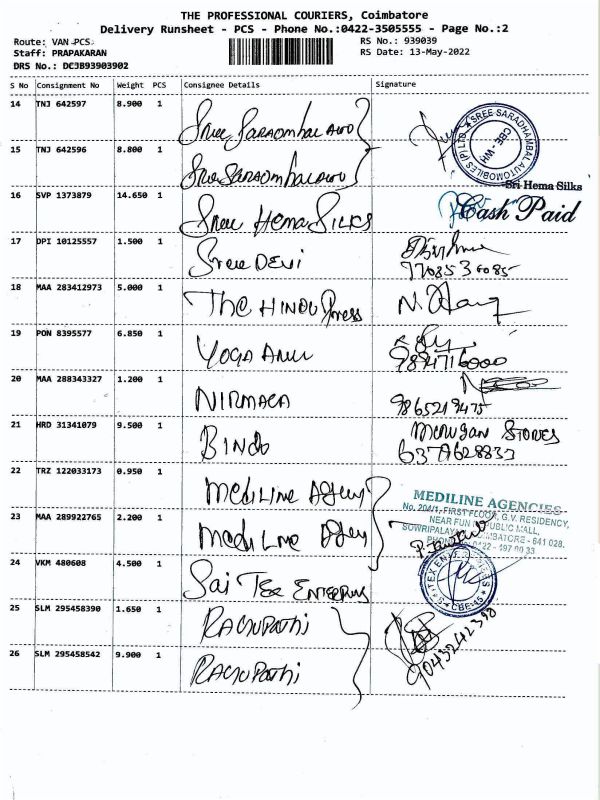 THE PROFESSIONAL COURIERS, Coimbatore
Delivery Runsheet - PCS - Phone No.:0422-3505555 - Page No.:2
Route: VAN-PCS
RS No.: 939039
Staff: PRAPAKARAN
RS Date: 13-May-2022
DRS No.: DC3B93903902
S No Consignment No Weight PCS Consignee Details Signature
14 TNJ 642597 8.900 1 Sree Saraombal Auto
SREE SARADHAMBAL AUTOMOBILES (P) LTD.
CBE - WH
15 TNJ 642596 8.800 1 Sree Saraombal Auto
16 SVP 1373879 14.650 1 Sree Hema Silks
Sri Hema Silks
Cash Paid
17 DPI 10125557 1.500 1 Sree Devi
18 MAA 283412973 5.000 1 The Hindu Press
19 PON 8395577 6.850 1 Yoga Anu
9894716000
20 MAA 288343327 1.200 1 Nirmala
9865219475
21 HRD 31341079 9.500 1 Bindo
Murugan Stores
6379628833
22 TRZ 122033173 0.950 1 Mediline Agency
MEDILINE AGENCIES
No. 204/1, FIRST FLOOR, G.V. RESIDENCY,
NEAR FUN REPUBLIC MALL,
SOWRIPALAYAM, COIMBATORE - 641 028.
23 MAA 289922765 2.200 1 Mediline Agency
24 VKM 480608 4.500 1 Sai Tex Enterprises
25 SLM 295458390 1.650 1 Ragupathi
9043242398
26 SLM 295458542 9.900 1 Ragupathi